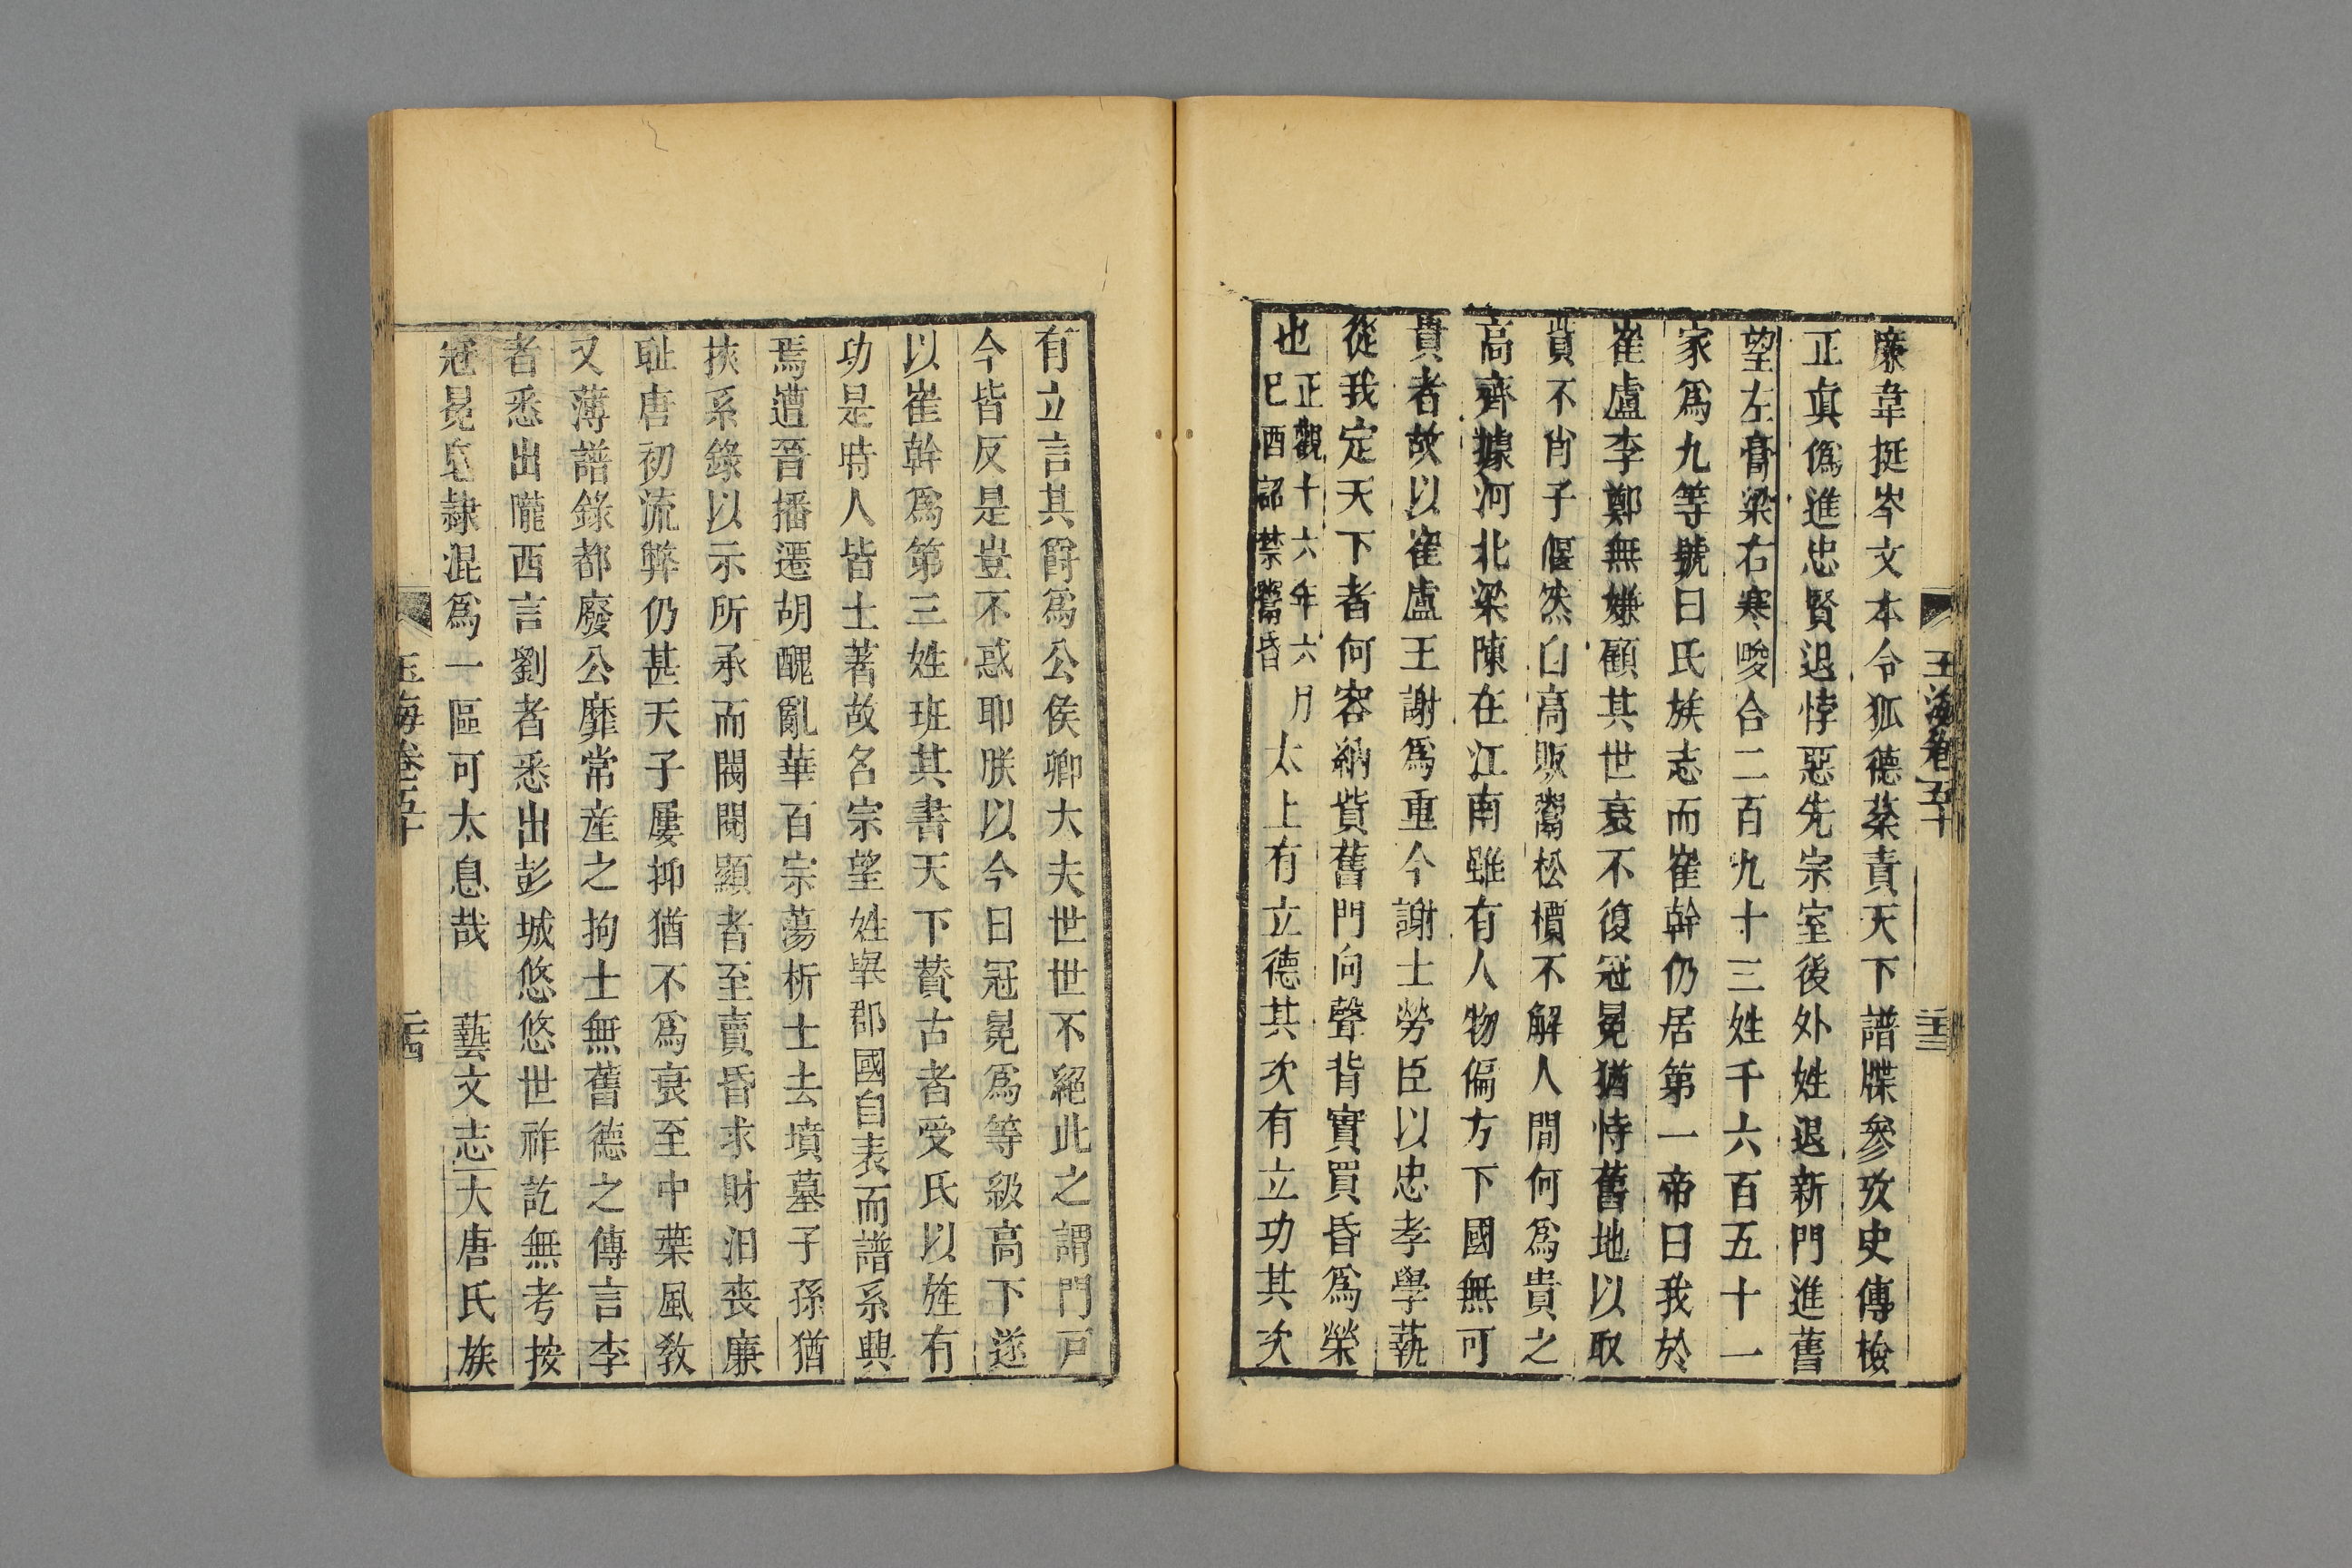 玉海卷五十
二十三
廉韋挺岑文本令狐德棻責天下譜牒參攷史傳檢
正真僞進忠賢退悖惡先宗室後外姓退新門進舊
望左膏梁右寒畯合二百九十三姓千六百五十一
家爲九等號曰氏族志而崔幹仍居第一帝曰我於
崔盧李鄭無嫌顧其世衰不復冠冕猶恃舊地以取
貲不肖子偃然自高販鬻松檟不解人間何爲貴之
高齊據河北梁陳在江南雖有人物偏方下國無可
貴者故以崔盧王謝爲重今謝士勞臣以忠孝學蓺
從我定天下者何容納貨舊門向聲背實買昏爲榮
也正觀十六年六月
己酉詔禁鬻昏
太上有立德其次有立功其次
有立言其爵爲公侯卿大夫世世不絕此之謂門戶
今皆反是豈不惑耶朕以今日冠冕爲等級高下遂
以崔幹爲第三姓班其書天下贊古者受氏以旌有
功是時人皆土著故名宗望姓舉郡國自表而譜系興
焉遭晉播遷胡醜亂華百宗蕩析士去墳墓子孫猶
挾系錄以示所承而閥閱顯者至賣昏求財汨喪廉
耻唐初流弊仍甚天子屢抑猶不爲衰至中葉風敎
又薄譜錄都廢公靡常産之拘士無舊德之傳言李
者悉出隴西言劉者悉出彭城悠悠世祚訖無考按
冠冕皁隷混爲一區可太息哉 藝文志大唐氏族
玉海卷五十
二十四